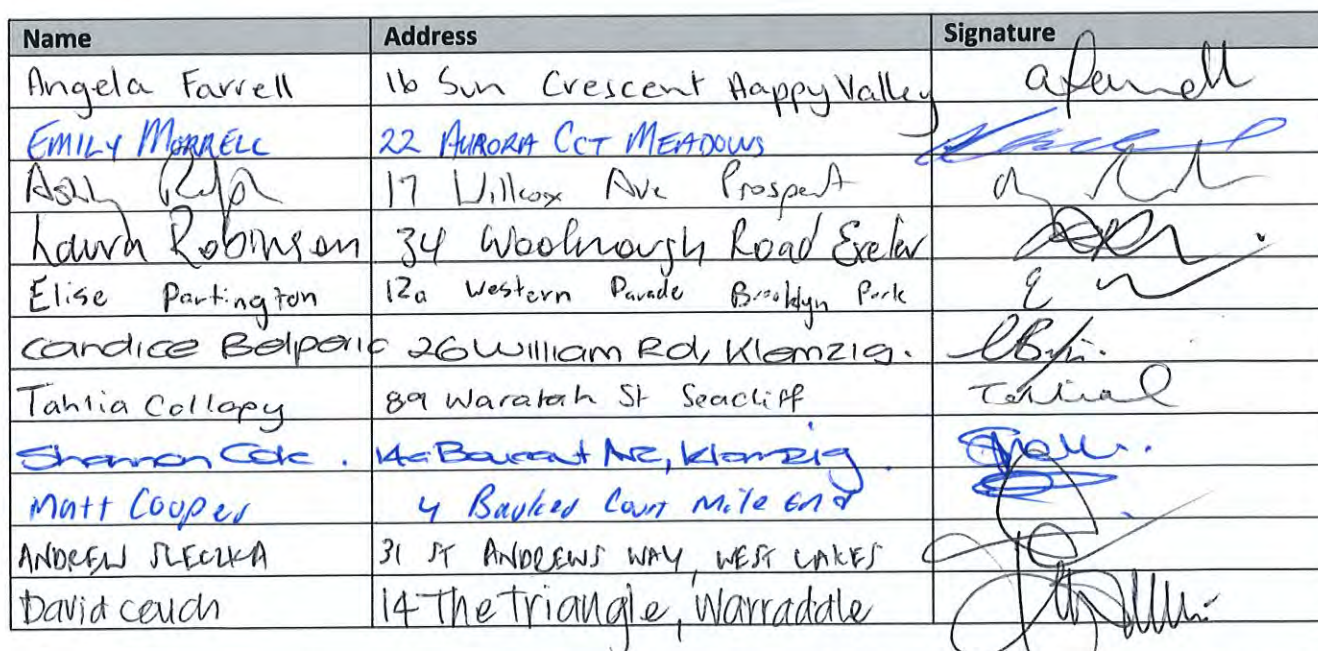 Name Address Signature
Angela Farrell 16 Sun Crescent Happy Valley
EMILY MORRELL 22 AURORA CCT MEADOWS
17 Willcox Ave Prospect
Laura Robinson 34 Woolnough Road Exeter
Elise Partington 12a Western Parade Brooklyn Park
Candice Belperio 26 William Rd, Klemzig.
Tahlia Collopy 89 Waratah St Seacliff
Shannon Cole. Klemzig.
Matt Cooper 4 Court Mile End
ANDREW SLECZKA 31 ST ANDREWS WAY, WEST LAKES
David 14 The Triangle, Warraddle